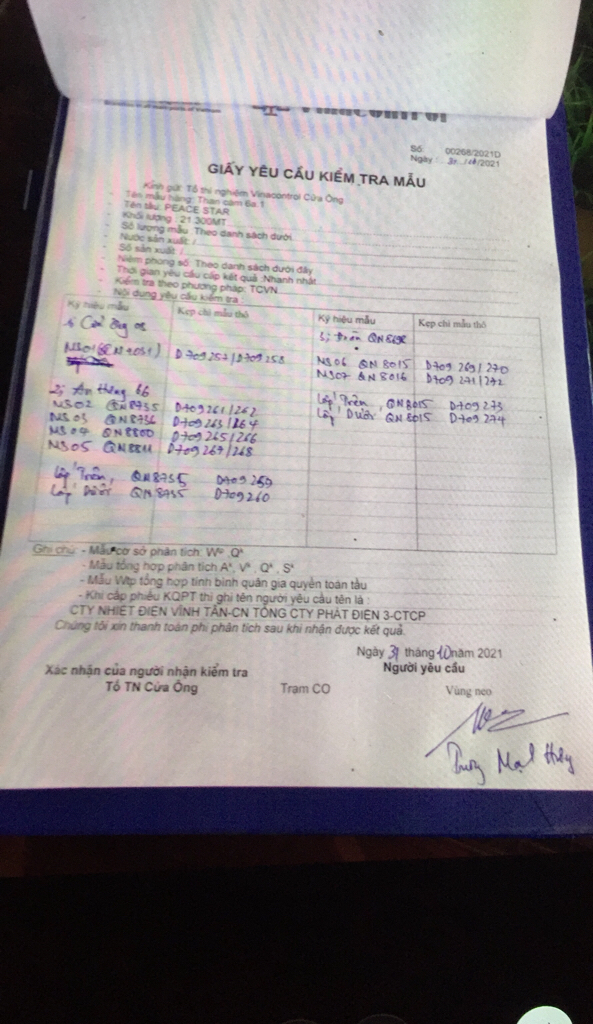 Vinacontrol
Số: 00268/2021D
Ngày: 31/10/2021
GIẤY YÊU CẦU KIỂM TRA MẪU
Kính gửi: Tổ thí nghiệm Vinacontrol Cửa Ông
- Tên mẫu hàng: Than cám 6a.1
- Tên tàu: PEACE STAR
- Khối lượng : 21.300MT
- Số lượng mẫu: Theo danh sách dưới
- Nước sản xuất: /
- Số sản xuất: /
- Niêm phong số: Theo danh sách dưới đây
- Thời gian yêu cầu cấp kết quả: Nhanh nhất
- Kiểm tra theo phương pháp: TCVN
- Nội dung yêu cầu kiểm tra :
Ký hiệu mẫu Kẹp chì mẫu thô Ký hiệu mẫu Kẹp chì mẫu thô
1, Cửa Ông
D709257/D709258
NS06 QN 8015 D709 269/270
NS07 QN 8016 D709 271/272
NS02 QN8735 D709261/262
NS03 QN8736 D709263/264
NS04 QN8800 D709265/266
NS05 QN8811 D709267/268
Lớp Trên, QN8015 D709273
Lớp Dưới QN 8015 D709 274
Lớp Trên, QN8735 D709 259
Lớp Dưới QN 8735 D709260
Ghi chú: - Mẫu cơ sở phân tích: W, Q
- Mẫu tổng hợp phân tích A, V, Q, S
- Mẫu Wtp tổng hợp tính bình quân gia quyền toàn tàu
- Khi cấp phiếu KQPT thì ghi tên người yêu cầu tên là :
CTY NHIỆT ĐIỆN VĨNH TÂN-CN TỔNG CTY PHÁT ĐIỆN 3-CTCP
Chúng tôi xin thanh toán phí phân tích sau khi nhận được kết quả.
Ngày 31 tháng 10 năm 2021
Xác nhận của người nhận kiểm tra Người yêu cầu
Tổ TN Cửa Ông Trạm CO Vùng neo